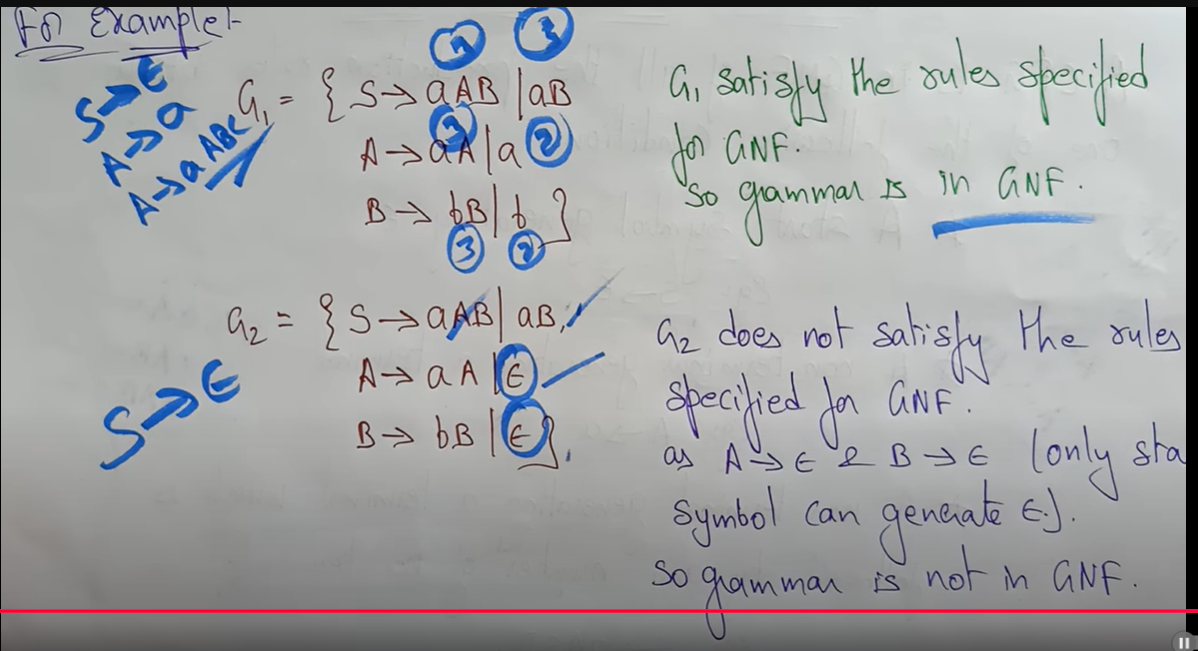 For Example:-
S → ∈
A → a
A → aABC
③ ③
G₁ = { S → aAB | aB
③
A → aA | a ②
B → bB | b }
③ ②
G₁ satisfy the rules specified
for GNF.
So grammar is in GNF.
G₂ = { S → aAB | aB,
A → aA | ∈
B → bB | ∈ },
S → ∈
G₂ does not satisfy the rules
specified for GNF.
as A → ∈ & B → ∈ (only sta
symbol can generate ∈).
So grammar is not in GNF.